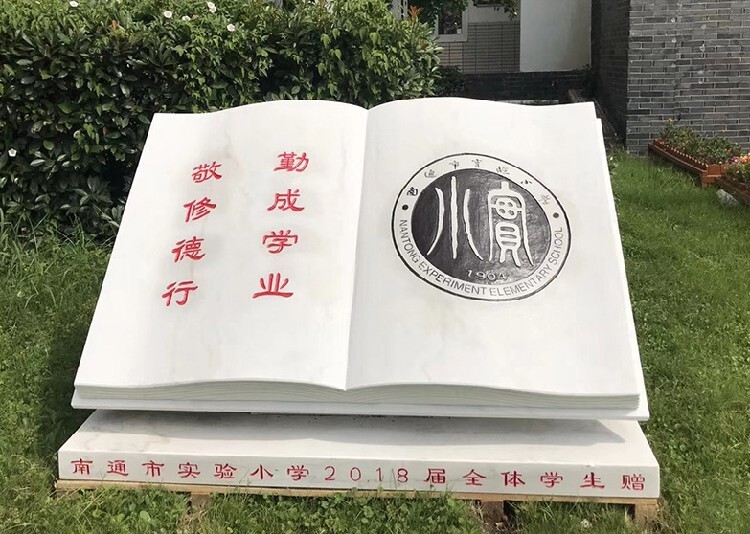 勤成学业
敬修德行
南通市實驗小學
實小
1904
NANTONG EXPERIMENT ELEMENTARY SCHOOL
南通市实验小学2018届全体学生赠